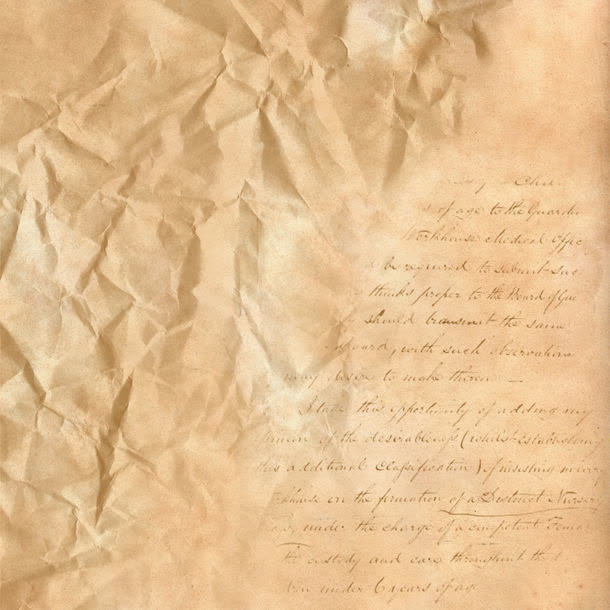 of age to the Guardi
Workhouse Medical Offic
be required to submit suc
thinks proper to the Board of Gua
should transmit the same
with such observations
may desire to make thereon —
I take this opportunity of adding my
of the desirableness (whilst establishing
this additional classification) of insisting
on the formation of a District Nurser
under the charge of a competent Femal
the custody and care throughout the
under 6 years of age